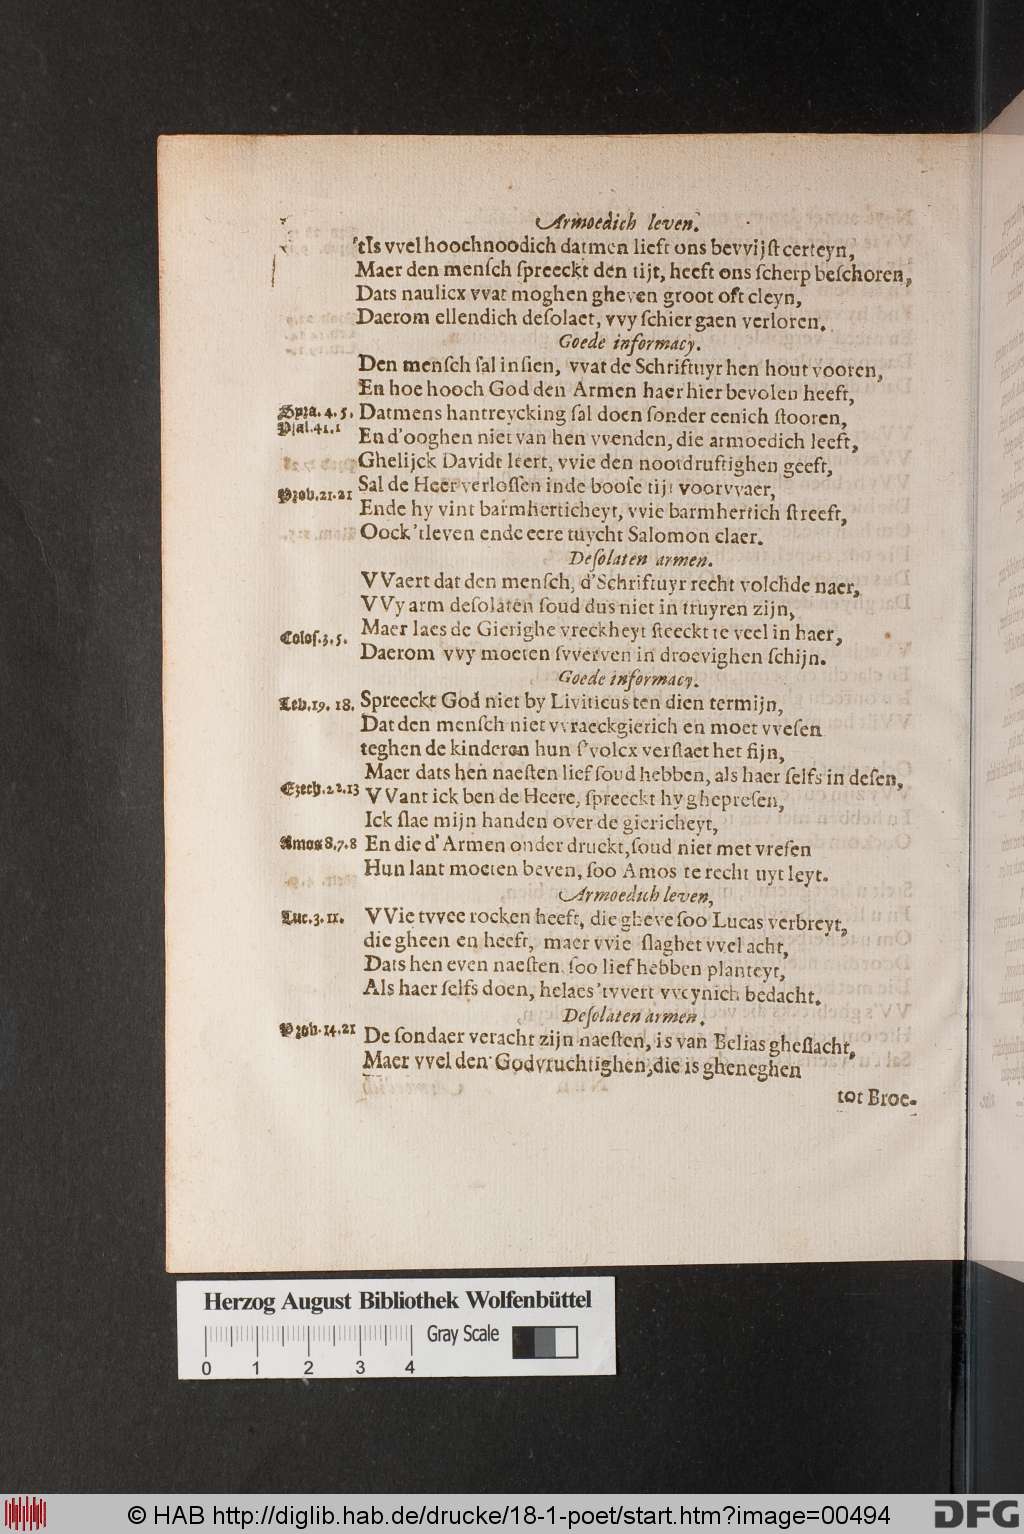 Armoedich leven.
'tIs vvel hoochnoodich datmen lieft ons bevvijſt certeyn,
Maer den menſch ſpreeckt den tijt, heeft ons ſcherp beſchoren,
Dats naulicx vvat moghen gheven groot oft cleyn,
Daerom ellendich deſolaet, vvy ſchier gaen verloren.
Goede informacy.
Den menſch ſal inſien, vvat de Schriftuyr hen hout vooren,
En hoe hooch God den Armen haer hier bevolen heeft,
Syra. 4. 5. Datmens hantreycking ſal doen ſonder eenich ſtooren,
Pſal. 41. 1 En d'ooghen niet van hen vvenden, die armoedich leeft,
Ghelijck Davidt leert, vvie den nootdruftighen geeft,
Sal de Heer verloſſen inde booſe tijt voorvvaer,
Prov. 21. 21 Ende hy vint barmherticheyt, vvie barmhertich ſtreeft,
Oock 'tleven ende eere tuycht Salomon claer.
Deſolaten armen.
VVaert dat den menſch, d'Schriftuyr recht volchde naer,
VVy arm deſolaten ſoud dus niet in truyren zijn,
Coloſ. 3. 5. Maer laes de Gierighe vreckheyt ſteeckt te veel in haer,
Daerom vvy moeten ſvverven in droevighen ſchijn.
Goede informacy.
Lev. 19. 18. Spreeckt God niet by Liviticus ten dien termijn,
Dat den menſch niet vvraeckgierich en moet vveſen
teghen de kinderen hun ſ'volcx verſtaet het fijn,
Maer dats hen naeſten lief ſoud hebben, als haer ſelfs in deſen,
Ezech. 22. 13 VVant ick ben de Heere, ſpreeckt hy ghepreſen,
Ick ſlae mijn handen over de giericheyt,
Amos 8. 7. 8 En die d'Armen onder druckt, ſoud niet met vreſen
Hun lant moeten beven, ſoo Amos te recht uyt leyt.
Armoedich leven,
Luc. 3. 11. VVie tvvee rocken heeft, die gheve ſoo Lucas verbreyt,
die gheen en heeft, maer vvie ſlaghet vvel acht,
Dats hen even naeſten ſoo lief hebben planteyt,
Als haer ſelfs doen, helaes 'tvvert vveynich bedacht.
Deſolaten armen.
Prov. 14. 21 De ſondaer veracht zijn naeſten, is van Belias gheſlacht,
Maer vvel den Godvruchtighen, die is gheneghen
tot Broe-
Herzog August Bibliothek Wolfenbüttel
Gray Scale
0 1 2 3 4
© HAB http://diglib.hab.de/drucke/18-1-poet/start.htm?image=00494
DFG